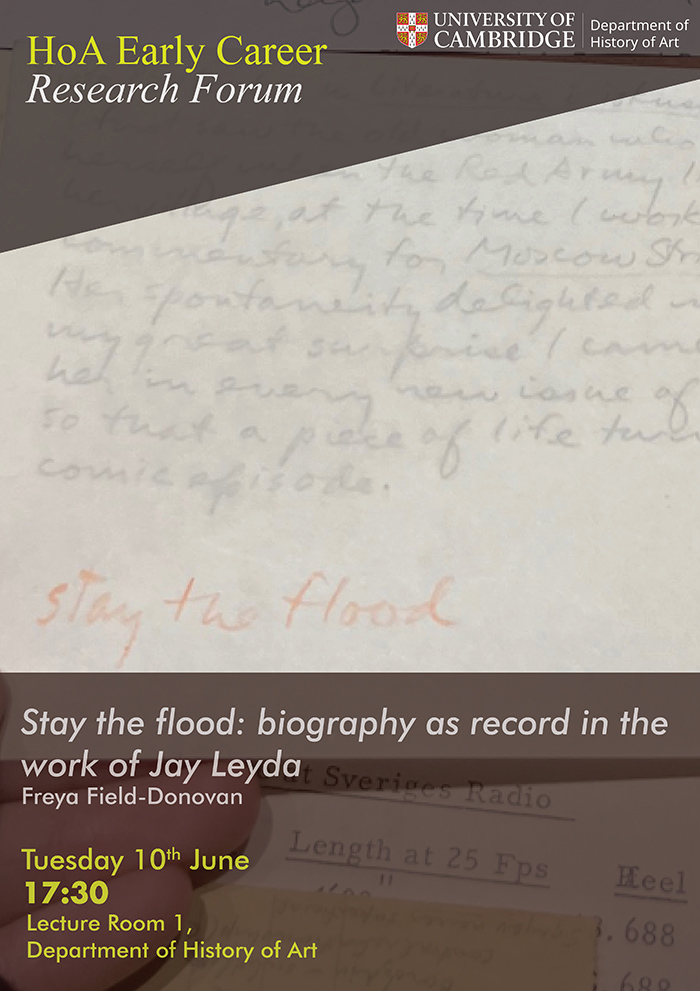 UNIVERSITY OF
CAMBRIDGE
Department of
History of Art
HoA Early Career
Research Forum
the old woman who
in the Red Army
at the time I
commentary for Moscow
Her spontaneity delighted
my great surprise I came
her in every new issue of
so that a piece of life
comic episode.
stay the flood
Stay the flood: biography as record in the
work of Jay Leyda
Freya Field-Donovan
at Sveriges Radio
Length at 25 Fps
Reel
Tuesday 10th June
17:30
.688
Lecture Room 1,
Department of History of Art
688